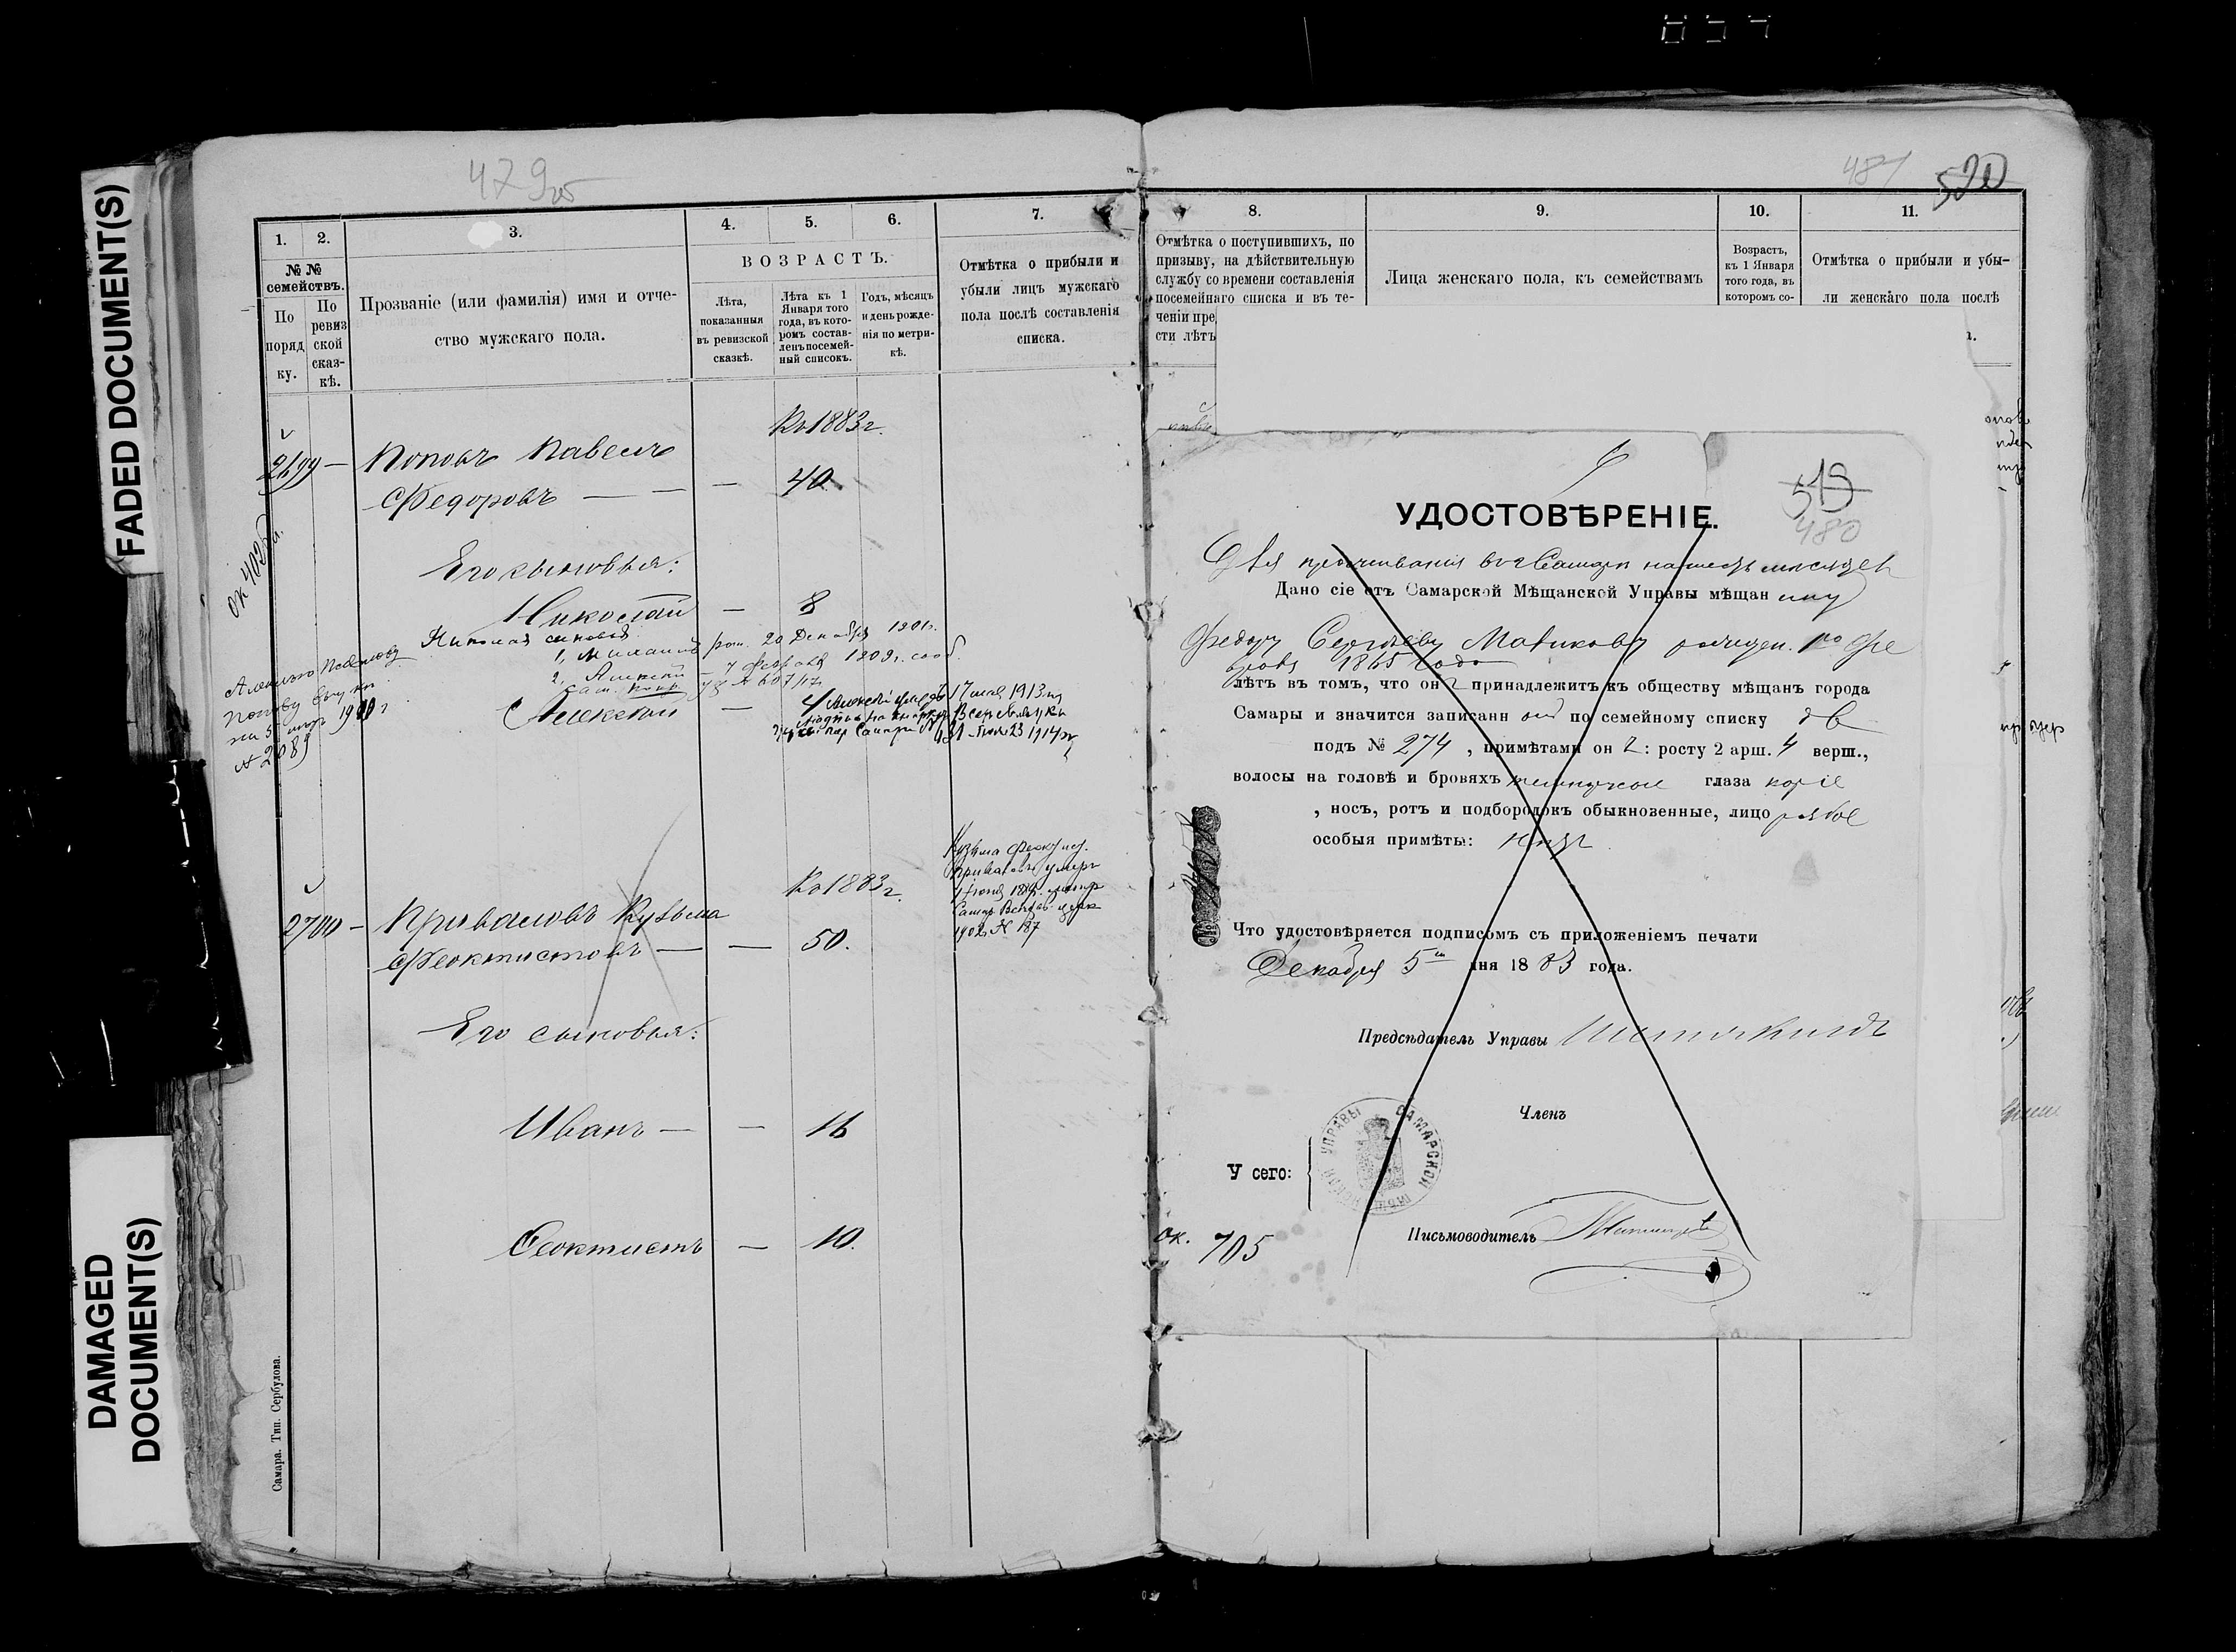 FADED DOCUMENT(S)
DAMAGED
DOCUMENT(S)
479об
1.
2.
3.
4.
5.
6.
7.
№ №
семействъ.
По
поряд
ку.
По
ревиз
ской
сказ-
кѣ.
Прозваніе (или фамилія) имя и отче-
ство мужскаго пола.
ВОЗРАСТЪ.
Лѣта,
показанныя
въ ревизской
сказкѣ.
Лѣта къ 1
Января того
года, въ кото-
ромъ состав-
ленъ посемей-
ный списокъ.
Годъ, мѣсяцъ
и день рожде-
нія по метри-
кѣ.
Отмѣтка о прибыли и
убыли лицъ мужскаго
пола послѣ составленія
списка.
Къ 1883 г.
2699 — Поповъ Павелъ
Федоровъ — — — 40.
Его сыновья:
Николай — 8
Николая сыновья
1, Михаилъ рож. 20 Декабря 1901г.
2, Алексѣй — 7 февраля 1909г.
Алексѣй — 4
Алексѣй умеръ 17 мая 1913 г.
Алексѣю Павлову
Попову
№ 2089
Къ 1883 г.
2700 — Приваловъ Кузьма
Феоктистовъ — — 50.
Кузьма Феоктис.
Приваловъ умеръ
1902 № 187
Его сыновья:
Иванъ — — 16
Феоктистъ — 10.
Самара. Тип. Сербулова.
481
520
8.
9.
10.
11.
Отмѣтка о поступившихъ, по
призыву, на дѣйствительную
службу со времени составленія
посемейнаго списка и въ те-
ченіи пре
сти лѣтъ
Лица женскаго пола, къ семействамъ
Возрастъ,
къ 1 Января
того года, въ
которомъ со-
Отмѣтка о прибыли и убы-
ли женскаго пола послѣ
519
480
УДОСТОВѢРЕНІЕ.
Для проживанія въ г Самарѣ на шесть мѣсяцевъ
Дано сіе отъ Самарской Мѣщанской Управы мѣщанину
Федору Сергѣеву Маликову рожден. 1го Фе
враля 1865 года
лѣтъ въ томъ, что онъ принадлежитъ къ обществу мѣщанъ города
Самары и значится записанный по семейному списку
подъ № 274, примѣтами онъ: росту 2 арш. 4 верш.,
волосы на головѣ и бровяхъ темнорусые глаза каріе
, носъ, ротъ и подбородокъ обыкновенные, лицо рябое
особыя примѣты: нѣтъ
Что удостовѣряется подписомъ съ приложеніемъ печати
Декабря 5го дня 1883 года.
Предсѣдатель Управы
Членъ
У сего:
САМАРСКОЙ МѢЩАНСКОЙ УПРАВЫ
Письмоводитель
ок. 705